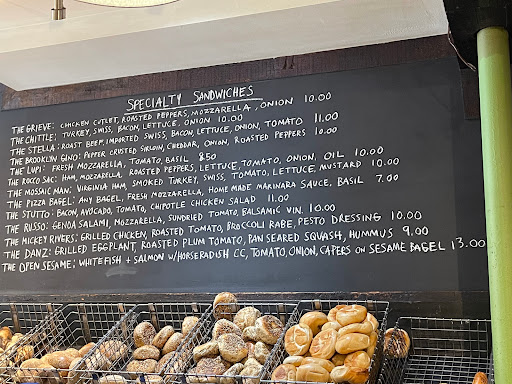 SPECIALTY SANDWICHES
THE GRIEVE: CHICKEN CUTLET, ROASTED PEPPERS, MOZZARELLA, ONION 10.00
THE CHITTLE: TURKEY, SWISS, BACON, LETTUCE, ONION 10.00
THE STELLA: ROAST BEEF, IMPORTED SWISS, BACON, LETTUCE, ONION, TOMATO 11.00
THE BROOKLYN GINO: PEPPER CRUSTED SIRLOIN, CHEDDAR, ONION, ROASTED PEPPERS 10.00
THE LUPI: FRESH MOZZARELLA, TOMATO, BASIL 8.50
THE ROCCO SAC: HAM, MOZZARELLA, ROASTED PEPPERS, LETTUCE, TOMATO, ONION, OIL 10.00
THE MOSSAIC MAN: VIRGINIA HAM, SMOKED TURKEY, SWISS, TOMATO, LETTUCE, MUSTARD 10.00
THE PIZZA BAGEL: ANY BAGEL, FRESH MOZZARELLA, HOME MADE MARINARA SAUCE, BASIL 7.00
THE STUTTO: BACON, AVOCADO, TOMATO, CHIPOTLE CHICKEN SALAD 11.00
THE RUSSO: GENOA SALAMI, MOZZARELLA, SUNDRIED TOMATO, BALSAMIC VIN. 10.00
THE MICKEY RIVERS: GRILLED CHICKEN, ROASTED TOMATO, BROCCOLI RABE, PESTO DRESSING 10.00
THE DANZ: GRILLED EGGPLANT, ROASTED PLUM TOMATO, PAN SEARED SQUASH, HUMMUS 9.00
THE OPEN SESAME: WHITEFISH + SALMON W/HORSERADISH CC, TOMATO, ONION, CAPERS ON SESAME BAGEL 13.00